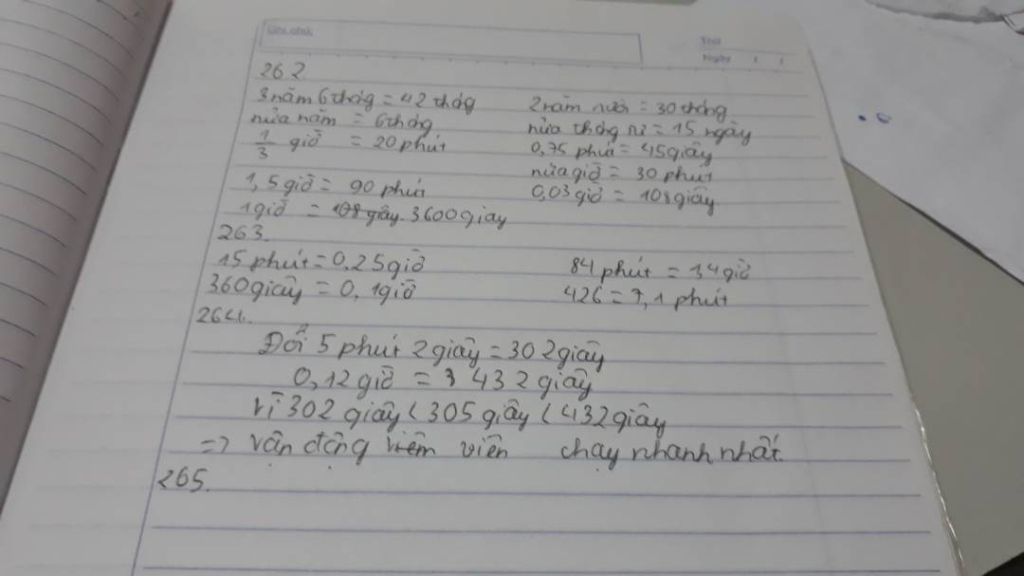 Thứ
Ngày / /
262
3 năm 6 tháng = 42 tháng 2 năm rưỡi = 30 tháng
nửa năm = 6 tháng nửa tháng tư = 15 ngày
1/3 giờ = 20 phút 0,75 phút = 45 giây
nửa giờ = 30 phút
1,5 giờ = 90 phút 0,03 giờ = 108 giây
1 giờ = 3600 giây
263.
15 phút = 0,25 giờ 84 phút = 1,4 giờ
360 giây = 0,1 giờ 426 = 7,1 phút
264.
Đổi 5 phút 2 giây = 302 giây
0,12 giờ = 432 giây
Vì 302 giây < 305 giây < 432 giây
=> vận động viên chạy nhanh nhất
265.